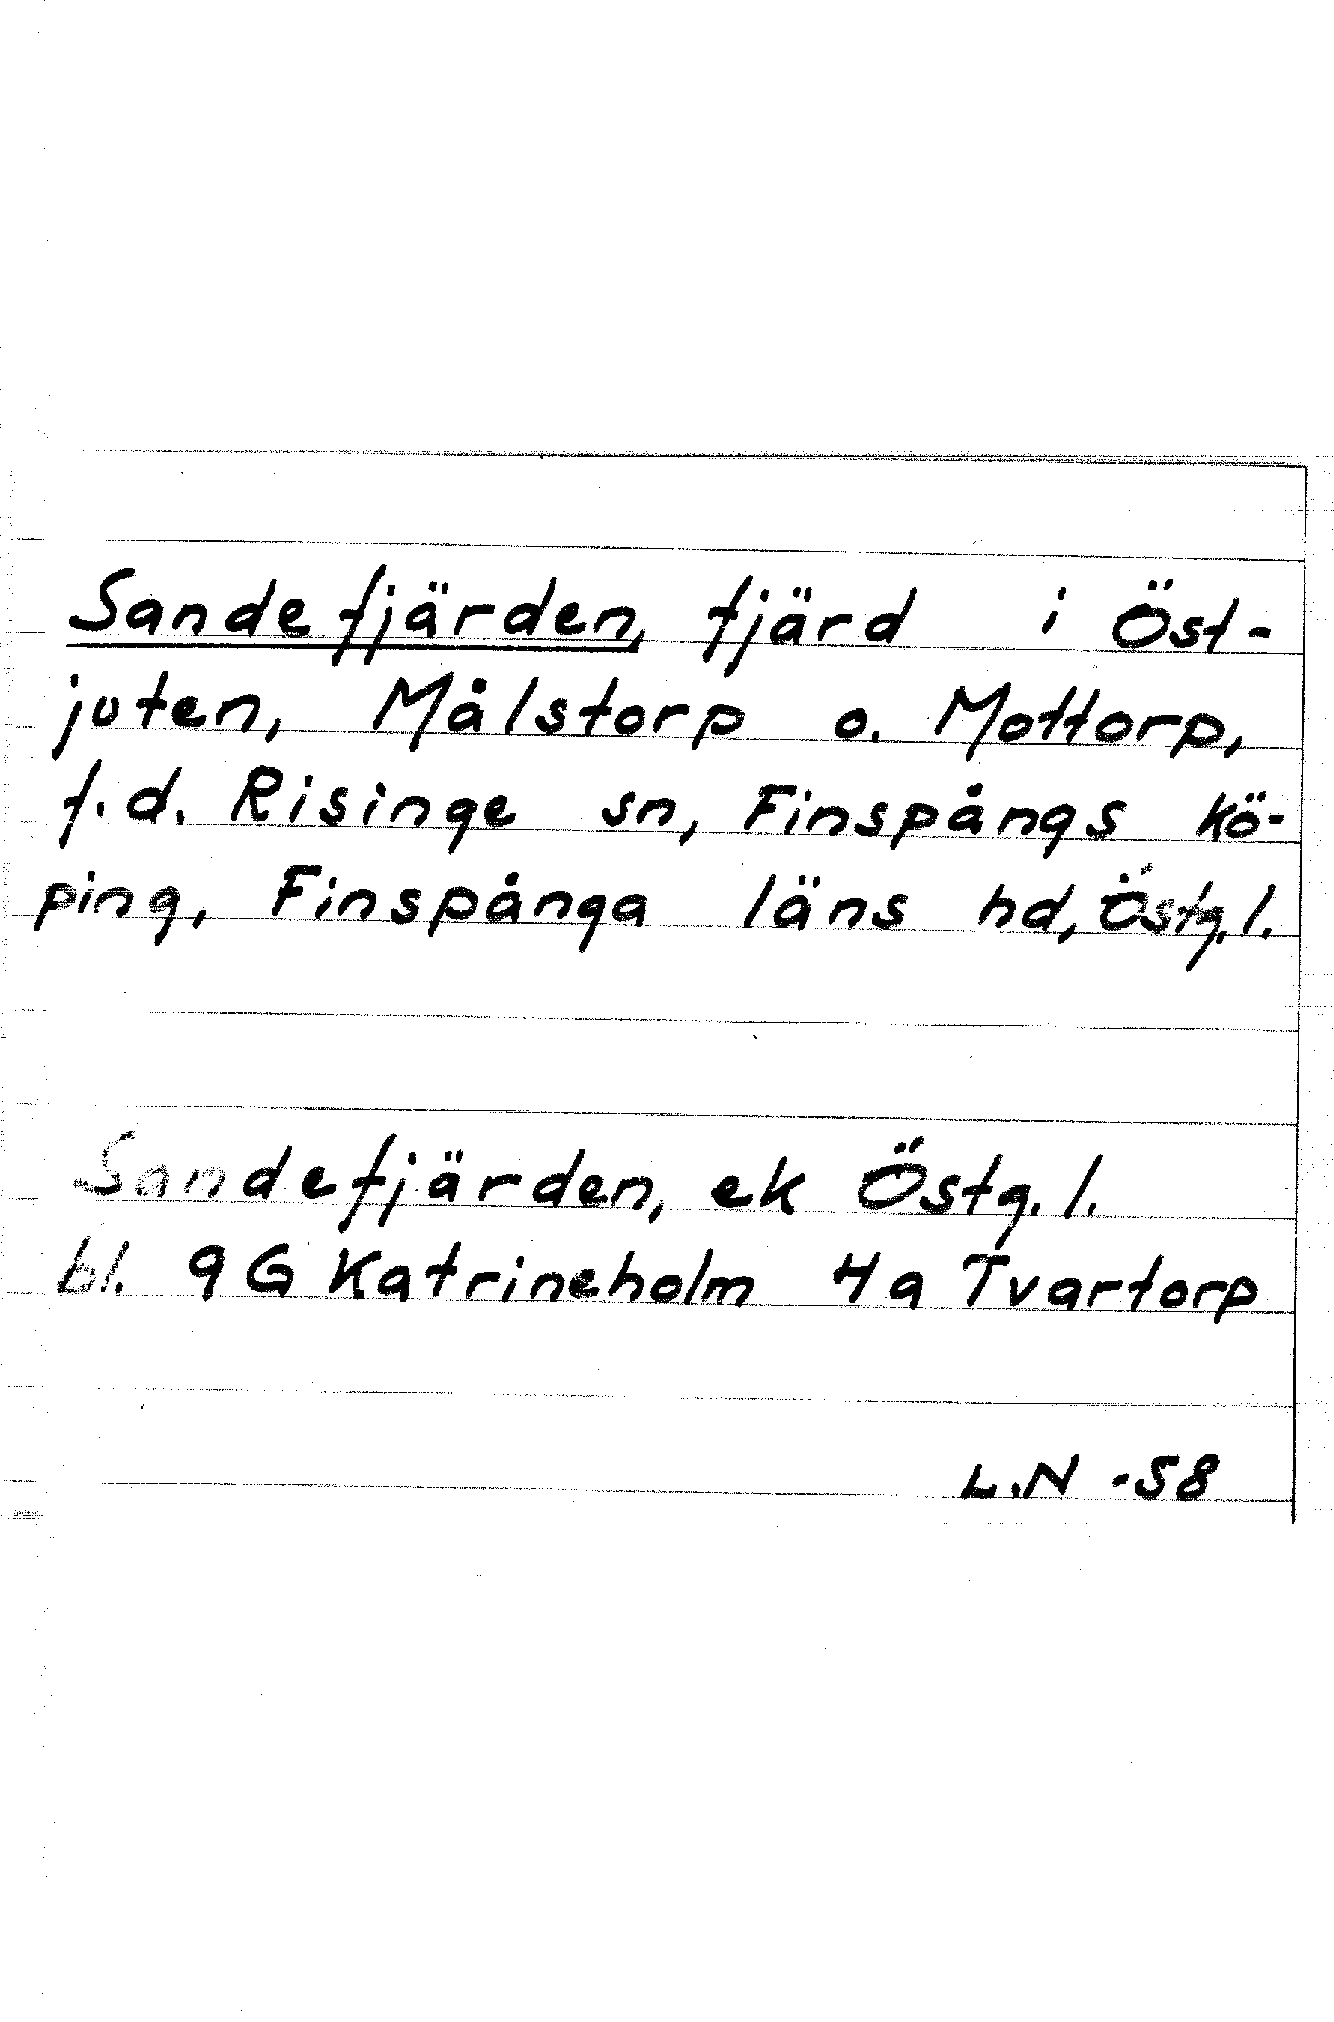 Sandefjärden, fjärd i Öst-
juten, Målstorp o. Mottorp,
f.d. Risinge sn, Finspångs kö-
ping, Finspånga läns hd, Östg.l.
Sandefjärden, ek Östg.l.
bl. 9G Katrineholm 4a Tvartorp
L.N -58